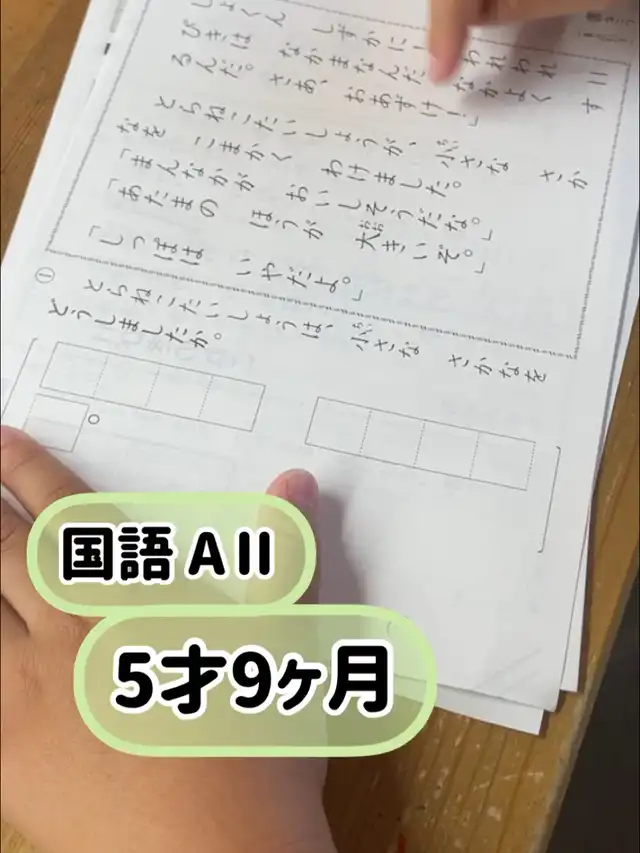 しょくん しずかに！ われわれ 二
びきは なかまなんだ なかよく す
るんだ。 さあ、 おあずけ！」
とらねこたいしょうが、 小さな さか
なを こまかく わけました。
「まんなかが おいしそうだな。」
「あたまの ほうが 大きいぞ。」
「しっぽは いやだよ。」
① とらねこたいしょうは、 小さな さかなを
どうしましたか。
。
国語 AII
5才9ヶ月